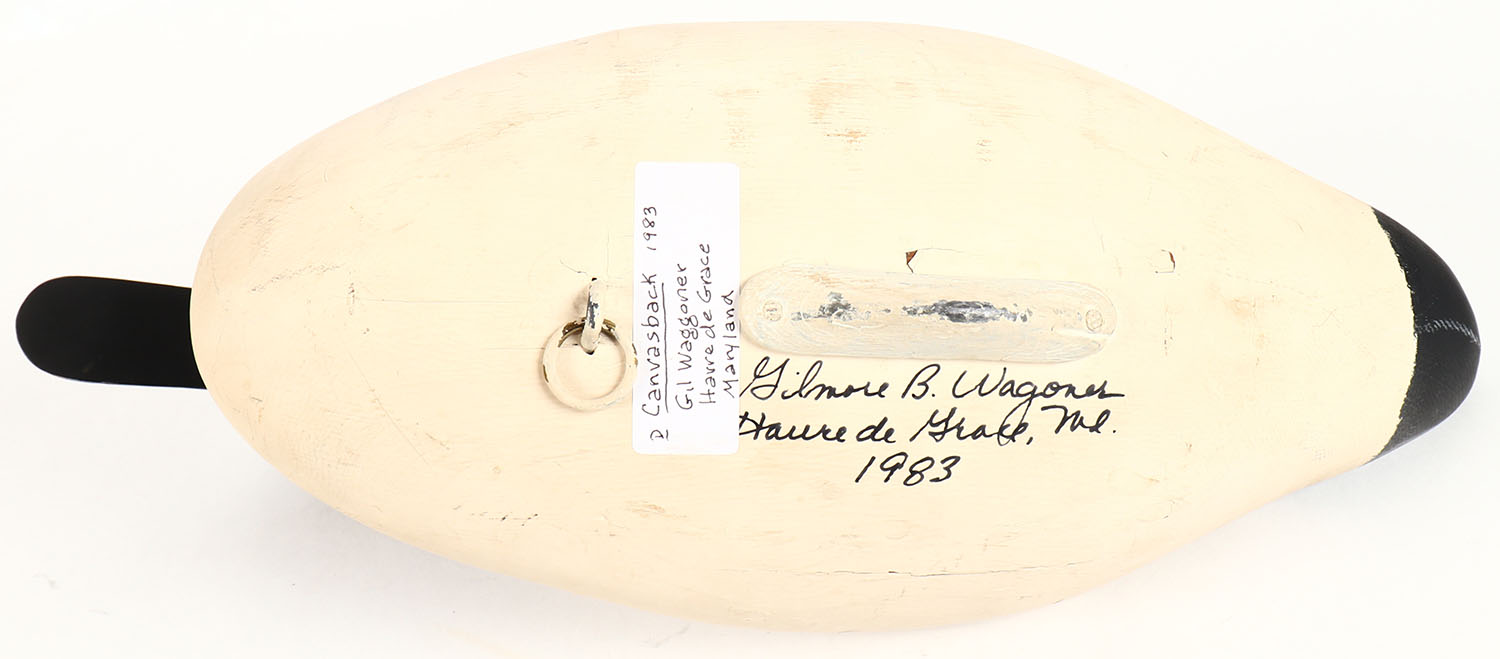 D Canvasback 1983
Gil Waggoner
Havre de Grace
Maryland
Gilmore B. Wagoner
Havre de Grace, Md.
1983